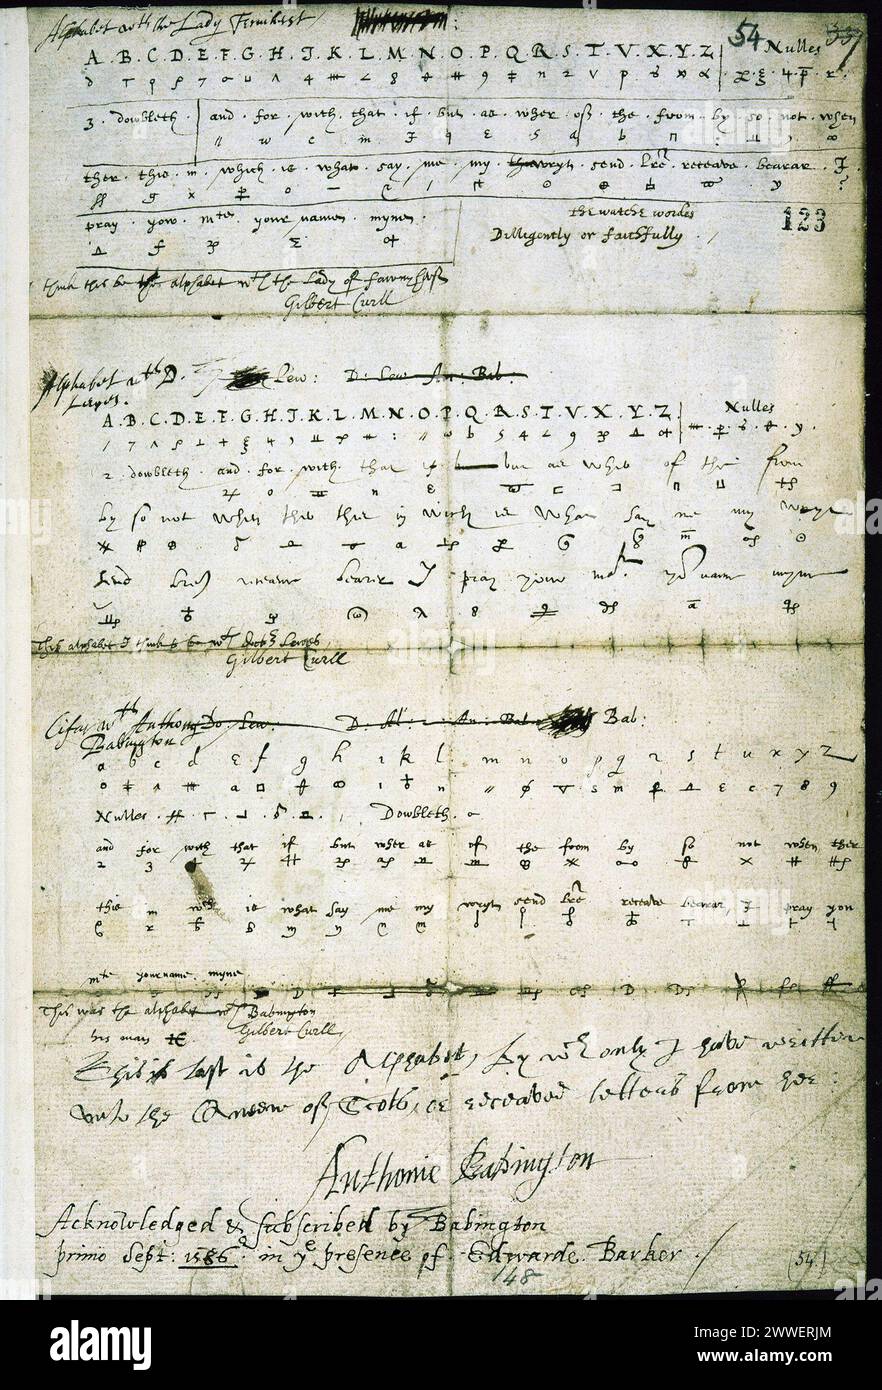 Alphabet with the Lady
54
A. B. C. D. E. F. G. H. J. K. L. M. N. O. P. Q. R. S. T. V. X. Y. Z Nulles
3. dowbleth. and. for. with. that. if. but. as. wher. of. the. from. by. so. not. when
ther. this. in. which. is. what. say. me. my. wryt. send. lre. receave. bearar. J.
pray. yow. mte. your name. myne. the watche wordes
Dilligently or faithfully. 123
think this be the alphabet wt the Lady of
Gilbert Curll
Alphabet wth D. Lew: D: Lew An: Bab.
Lewes.
A. B. C. D. E. F. G. H. J. K. L. M. N. O. P. Q. R. S. T. V. X. Y. Z. Nulles
2. dowbleth. and. for. with. that if but as wher of the from
by so not when this in which is what say me my wryt
send receave bearer J pray yow your name myne
This alphabet I think to be wt Lewes
Gilbert Curll
Cifar wth Anthony Do. Lew. An: Bab: Bab:
Babington
a b c d e f g h i k l m n o p q r s t u x y z
Nulles Dowbleth.
and for with that if but wher as of the from by so not when ther
this in wch is what say me my wryt send lre receave bearar J pray you
mte your name myne
This was the alphabet wt Babington
his man Gilbert Curll
This last is the Alphabet, by wch only I have written
unto the Queene of Scots, or receaved letters from her
Anthonie Babington
Acknowledged & subscribed by Babington
primo Sept: 1586 in ye presence of Edwarde Barker.
148
(54)
alamy
Image ID: 2WWERJM
www.alamy.com